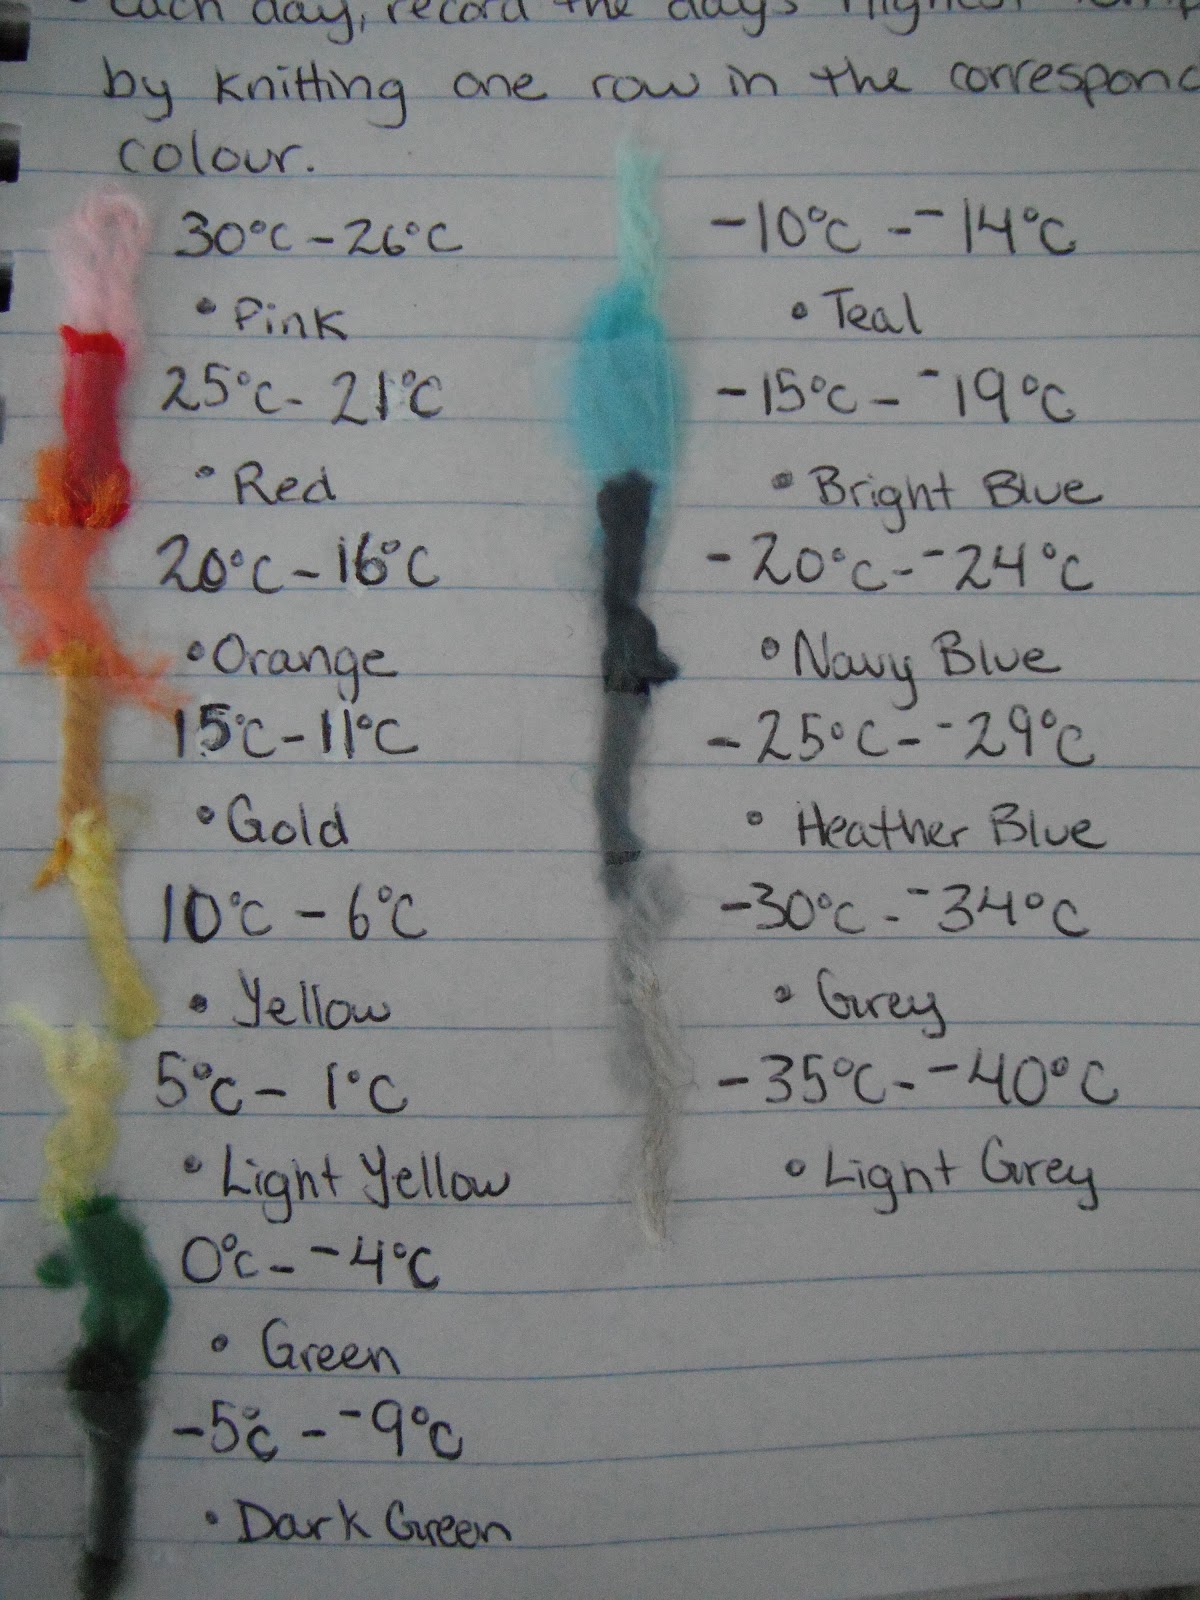 Each day, record the day's highest
by knitting one row in the
colour.
30°C - 26°C
• Pink
25°C - 21°C
• Red
20°C - 16°C
• Orange
15°C - 11°C
• Gold
10°C - 6°C
• Yellow
5°C - 1°C
• Light Yellow
0°C - -4°C
• Green
-5°C - -9°C
• Dark Green
-10°C - -14°C
• Teal
-15°C - -19°C
• Bright Blue
-20°C - -24°C
• Navy Blue
-25°C - -29°C
• Heather Blue
-30°C - -34°C
• Grey
-35°C - -40°C
• Light Grey